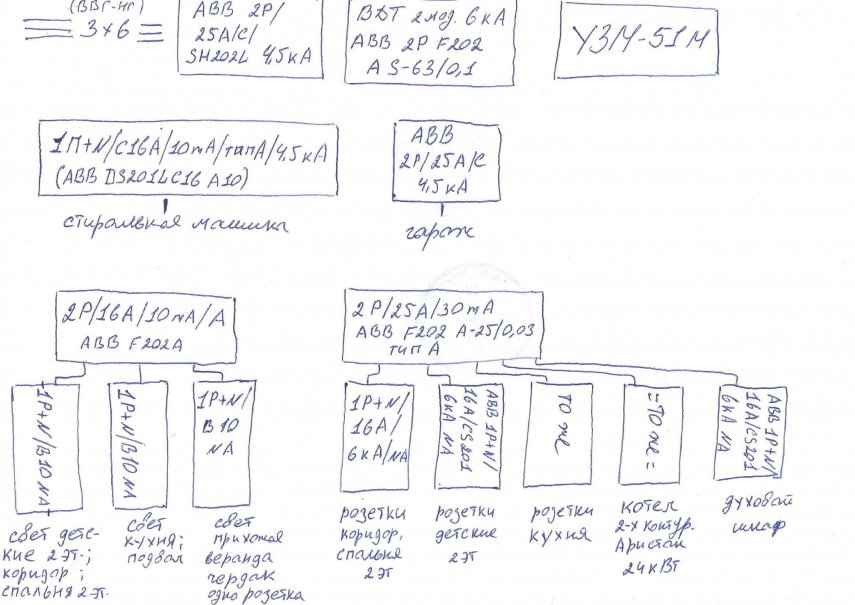 (ВВГ-нг)
3х6
ABB 2P/
25A/C/
SH202L 4,5кА
ВДТ 2мод. 6кА
ABB 2P F202
A S-63/0,1
УЗМ-51м
1П+N/C16A/10mA/типА/4,5кА
(ABB DS201L C16 A10)
стиральная машинка
ABB
2P/25A/C
4,5кА
гараж
2P/16A/10mA/A
ABB F202A
2P/25A/30mA
ABB F202 A-25/0,03
тип А
1P+N/B10 NA
1P+N/B10 NA
1P+N/
B10
NA
1P+N/
16A/
6кА/NA
ABB 1P+N/
16A/CS201
6кА NA
то же
=то же=
ABB 1P+N/
16A/CS201
6кА NA
свет детс-
кие 2 эт.;
коридор;
спальня 2 эт.
свет
кухня;
подвал
свет
прихожая
веранда
чердак
одна розетка
розетки
коридор,
спальня
2 эт
розетки
детские
2 эт
розетки
кухня
котел
2-х контур.
Аристон
24 кВт
духовой
шкаф